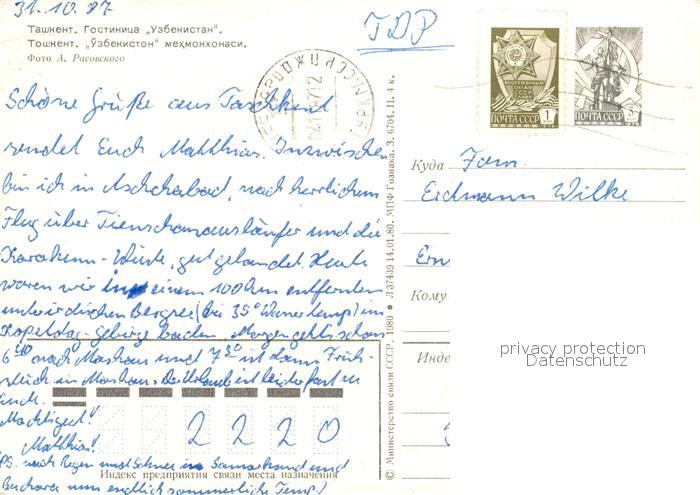 31.10.87
TDP
Ташкент. Гостиница „Узбекистан“.
Тошкент. „Ўзбекистон“ меҳмонхонаси.
Фото А. Расовского
ПОЧТА СССР 1
ПОЧТА СССР
Schöne Grüße aus Taschkent
sendet Euch Matthias. Inzwischen
bin ich in Aschchabad, nach herrlichem
Flug über Tienschanausläufer und die
Karakum-Wüste, gut gelandet. Heute
waren wir in einem 100 km entfernten
unterirdischen Bergsee (bei 35° Wassertemp) im
Kopetdag-gebirge baden. Morgen geht's schon
6 nach Moskau und 7 ist dann Früh-
stück in Moskau. Der Urlaub ist leider fast zu
Ende.
Macht's gut!
Matthias!
PS. nach Regen und Schnee in Samarkand und
Buchara nun endlich sommerliche Temp!
2220
Индекс предприятия связи места назначения
© Министерство связи СССР, 1980 ● Л 37439 14.01.80. МПФ Гознака. З. 6704. Ц. 4 к.
Куда Fam.
Erdmann Wilke
Ern
Кому
Инде
privacy protection
Datenschutz